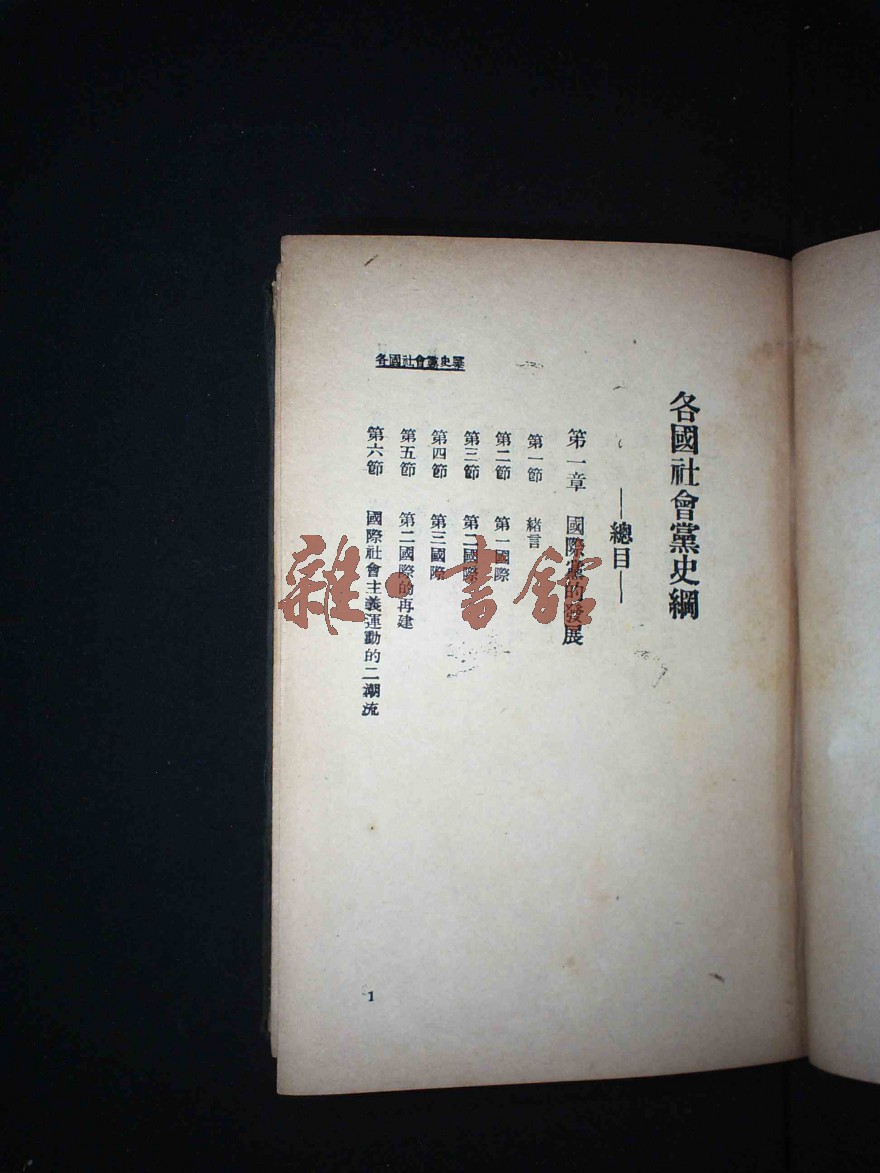 各國社會黨史綱
—總目—
第一章 國際黨的發展
第一節 緒言
第二節 第一國際
第三節 第二國際
第四節 第三國際
第五節 第二國際的再建
第六節 國際社會主義運動的二潮流
各國社會黨史綱
1
雜·書館